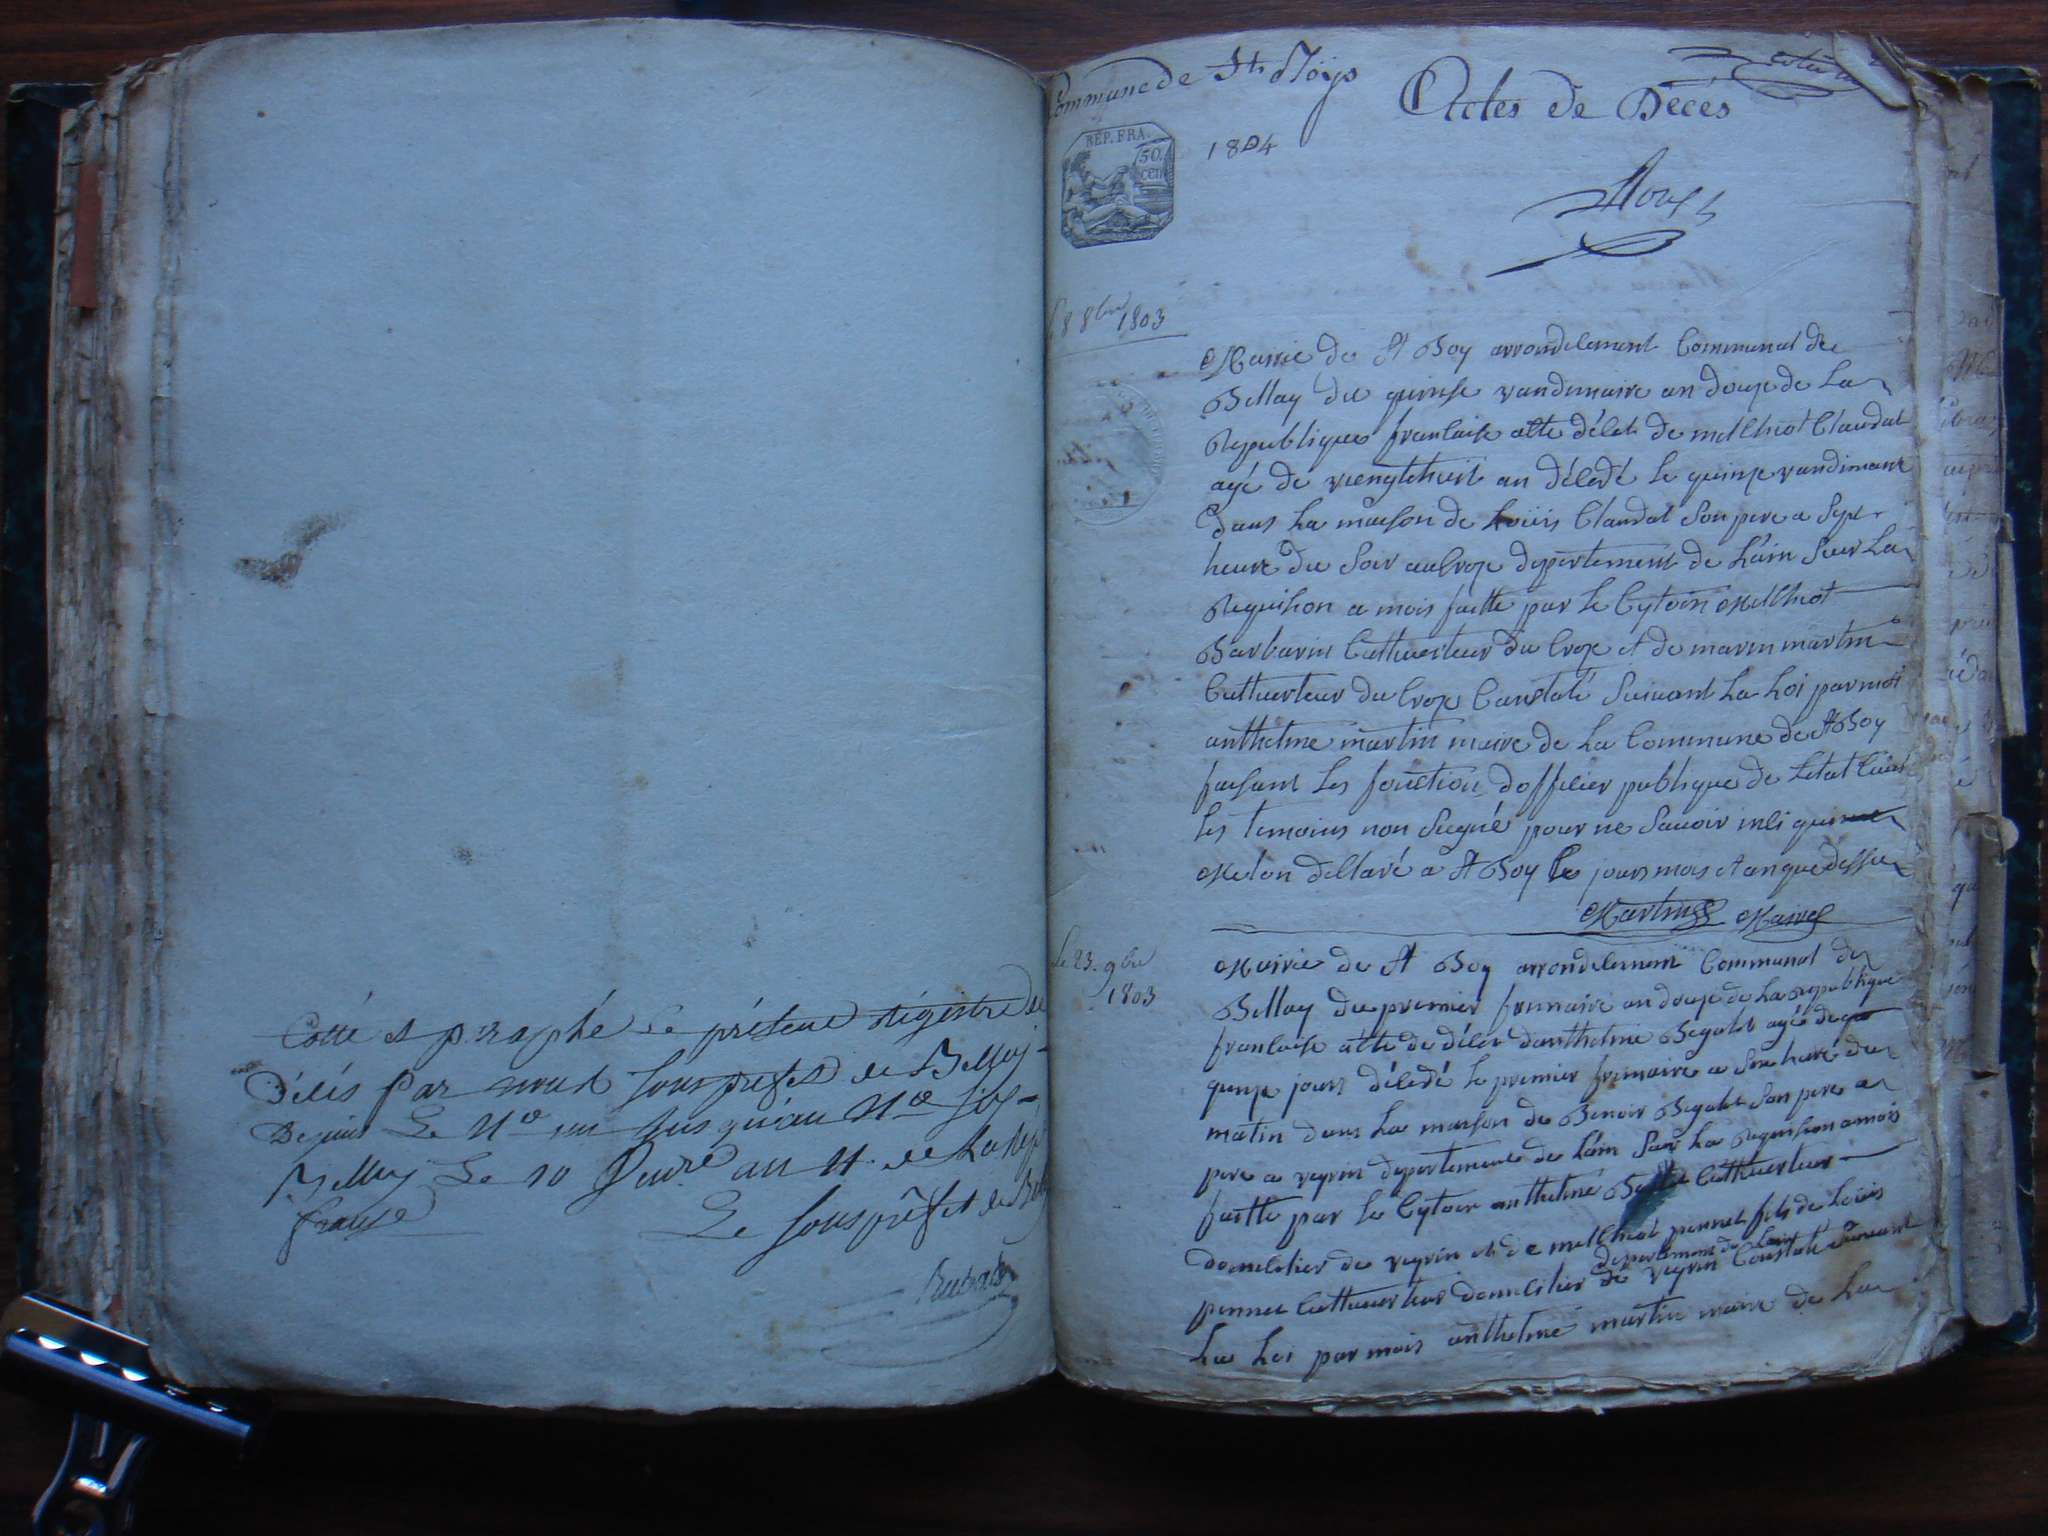 Cotté et paraphé le présent Régistre de
Décés par nous Sous prefet de Belley
Depuis Le N° un jusqu'au N° six
Belley Le 10 an 11 de La Rep
franse
Le Sous préfet de Bel
Commune de St. Boys
Actes de Decés
REP. FRA.
50
CEN
1804
8bre 1803
Mairie de St Boy arrondilement Communal de
Bellay du quinse vandimaire an douze de La
Republique franlaise atte délet de melChiot Claudat
agé de viengtehuit an délédé le quinse vandimaire
dans La maison de Loüis Claudat Son pere a Sept
heure du Soir au Croze depertement de Lain Sur La
Requihon a mois faitte par le Cytoin MelChiot
Barbarin Cultiverteur du Croze et de marin martin
Cultiverteur du Croze Canstaté Suivant La Loi par moi
anthelme martin maire de La Commune de St Boy
faisant Les fonction d'offilier publique de Letat Civil
les temoins non Siegné pour ne Savoir
deClaré a St Boy le jours mois et an que dessu
Martin Maire
Le 23. 9bre
1803
Mairie de St Boy arrondilement Communal de
Bellay du premier frimaire an douze de La Republique
franlaise atte de délet danthelme Begulet agé de
quinze jours délédé le premier frimaire a Sin heure du
matin dans La maison de Benoit Begulet Son pere a
pere a veyrin depertement de Lain Sur La Requihon a mois
faitte par le Cytoin anthelme Cultiverteur
domelilier de veyrin et de melChiot pennet fils de Loüis
depertement de Lain
pennet Cultiverteur domelilier de veyrin Constaté Suivant
La Loi par mois anthelme martin maire de La